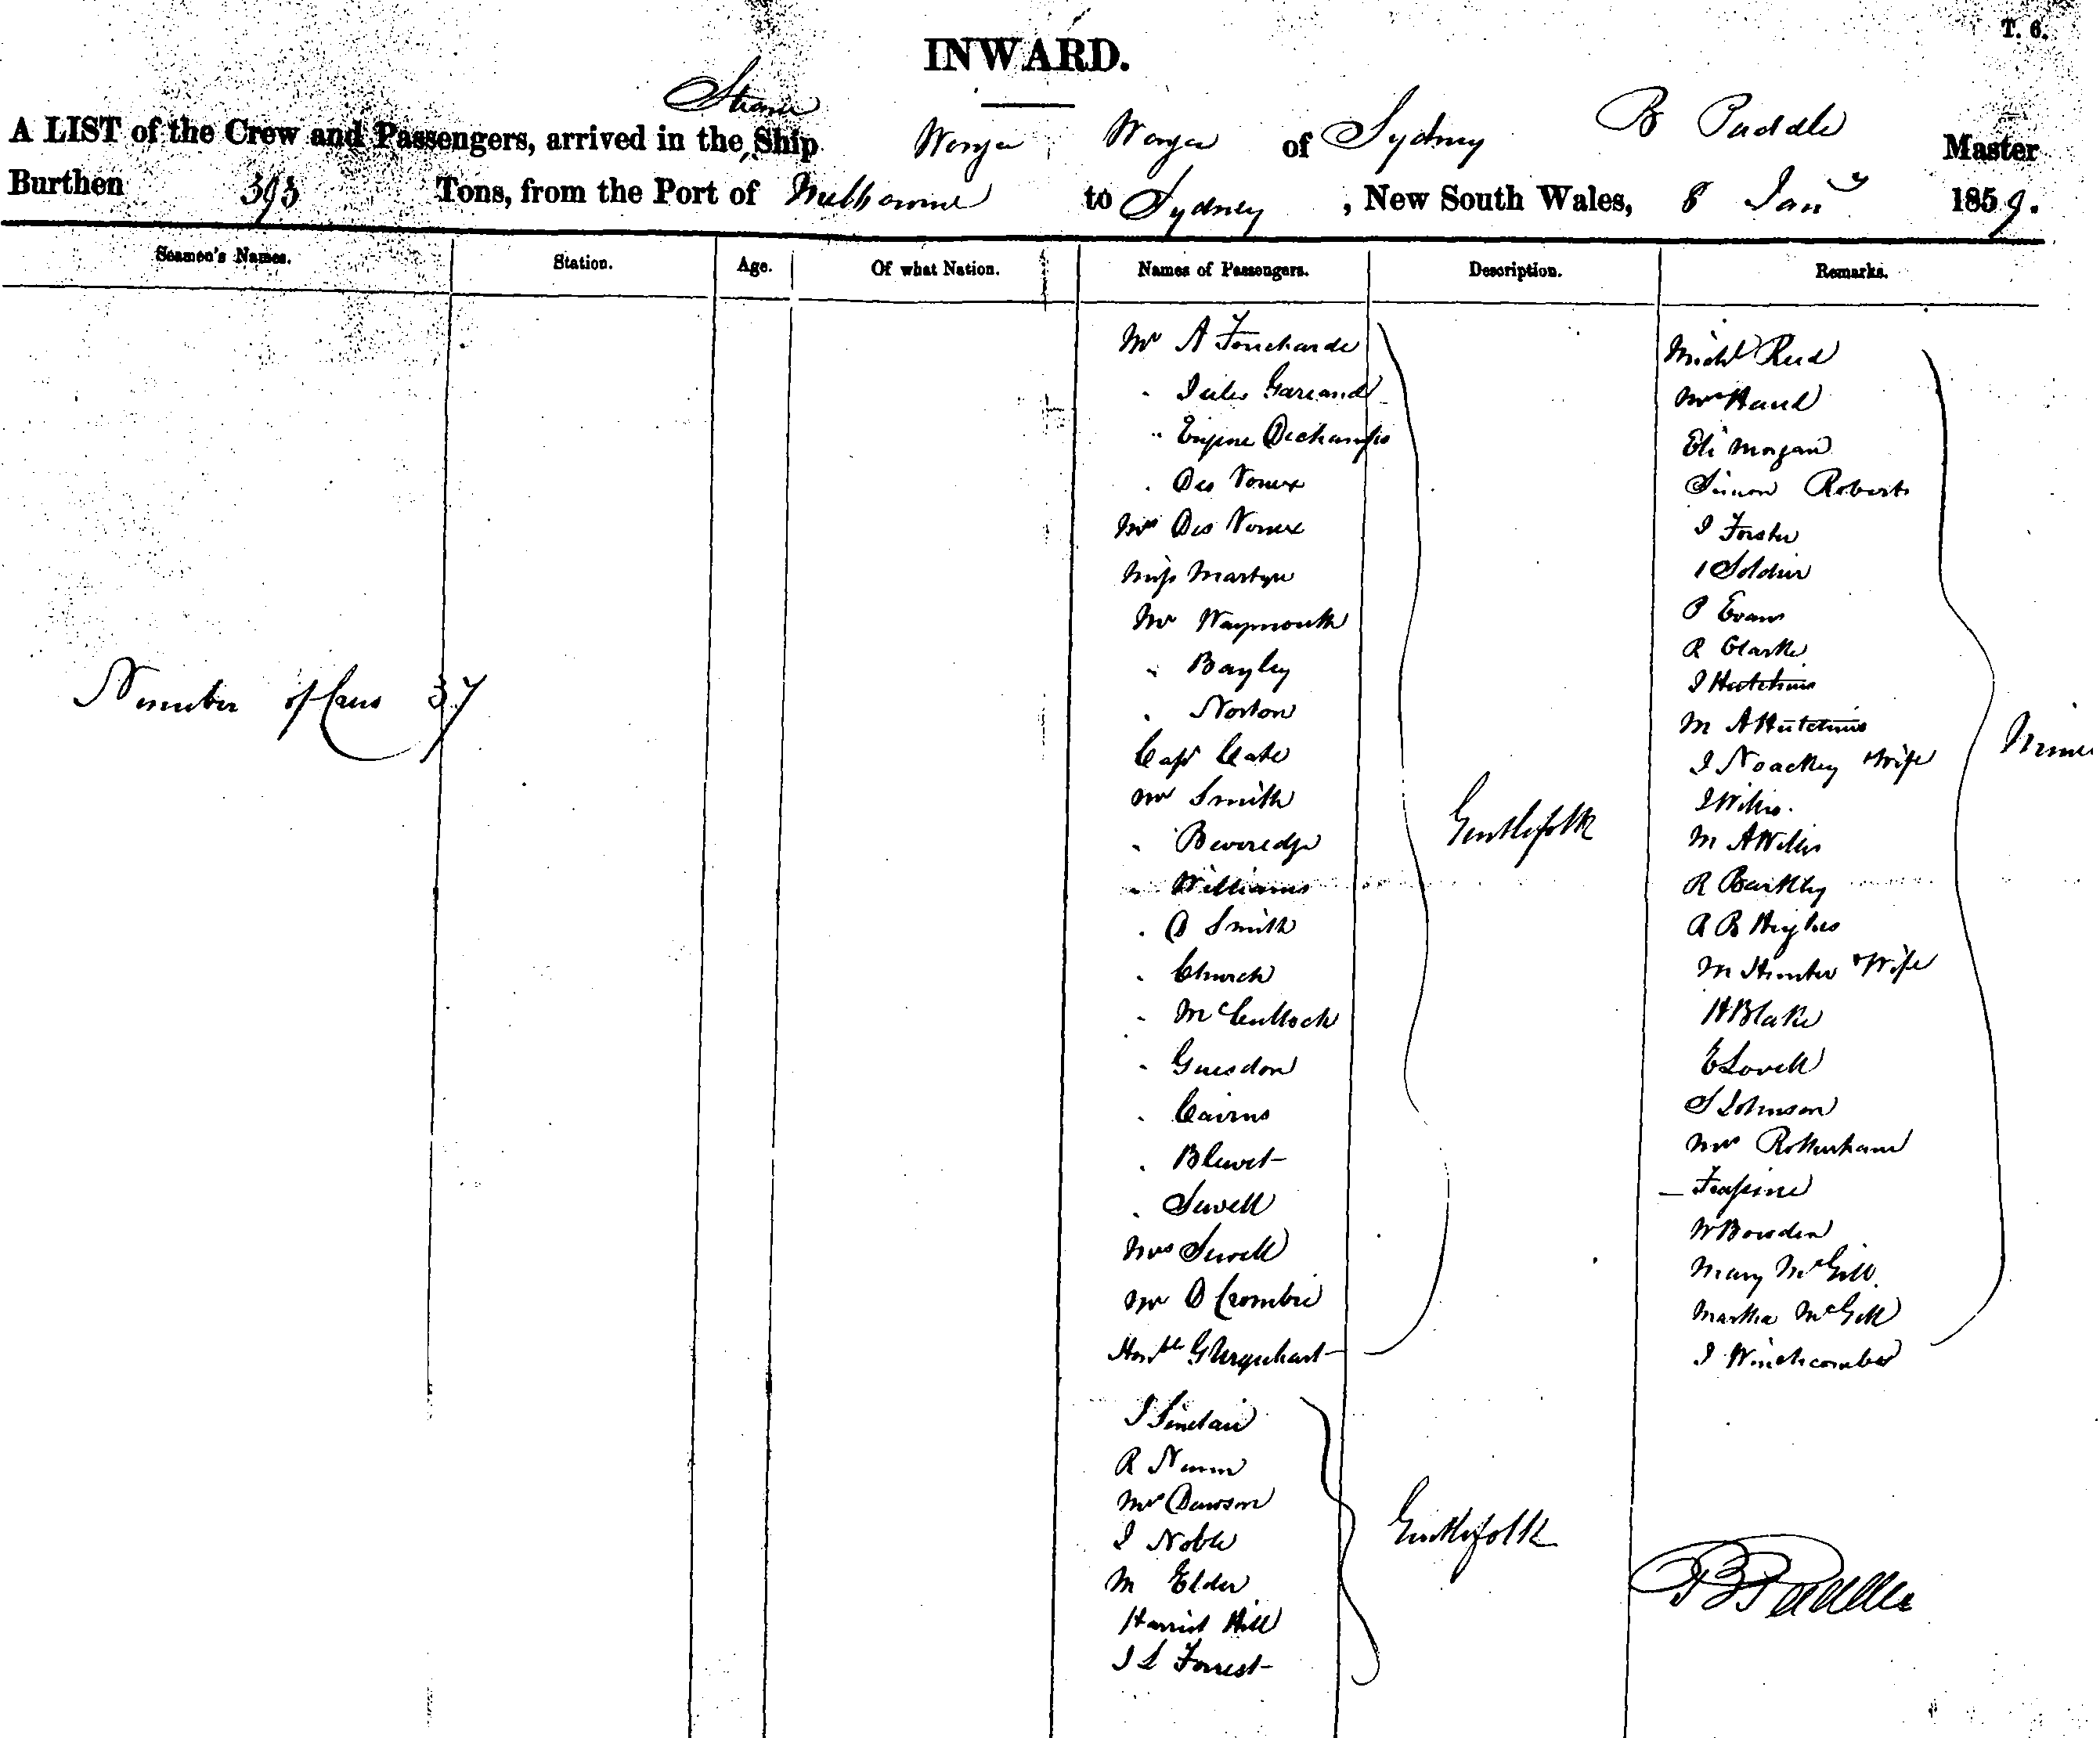 T. 6.
INWARD.
Steamer
A LIST of the Crew and Passengers, arrived in the Ship Wonga Wonga of Sydney B Paddle Master
Burthen 393 Tons, from the Port of Melbourne to Sydney, New South Wales, 8 Jany 1859.
Seamen's Names. Station. Age. Of what Nation. Names of Passengers. Description. Remarks.
Number of Crew 37
Mr A Foucharde
" Jules Garland
" Eugene Dechamps
" Des Voeux
Mrs Des Voeux
Miss Martyn
Mr Waymouth
" Bayley
" Norton
Capt Cate
Mr Smith
" Beveredge
" Williams
" D Smith
" Church
" McCulloch
" Guesdon
" Cairns
" Blewet
" Sewell
Mrs Sewell
Mr D Crombie
Honble G Urquhart
Gentlefolk
J Sinclair
R Nunn
Mr Dawson
J Noble
M Elder
Harriet Hill
J L Forrest
Gentlefolk
Michl Reid
Mr Hand
Eli Morgan
Simon Roberts
J Forster
1 Soldier
P Evans
R Clarke
J Hutchins
M A Hutchins
J Noackey & Wife
J Wilkis.
M A Wilkis
R Barkley
R B Hughes
M Hunter & Wife
H Blake
E Lovell
S Johnson
Mr Rottenham
W Bowden
Mary McGill
Martha McGill
J Winchcomber
B Paddle